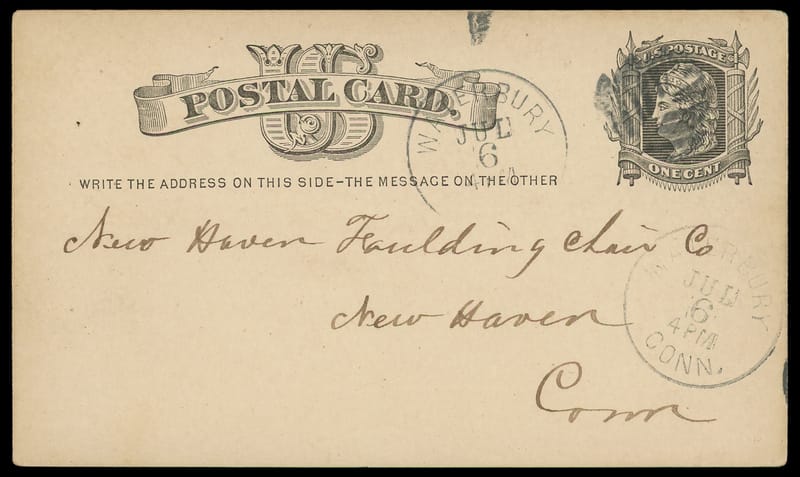 US
POSTAL CARD.
U.S. POSTAGE
ONE CENT
WATERBURY
JUL
6
WRITE THE ADDRESS ON THIS SIDE–THE MESSAGE ON THE OTHER
New Haven Faulding Chair Co
New Haven
Conn
WATERBURY
JUL
6
4 PM
CONN.